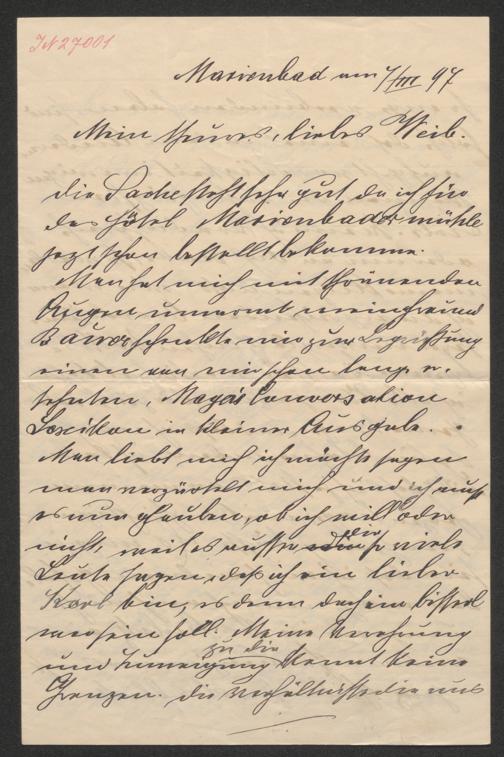 IN 27001
Marienbad am 7/III 97
Mein theures, liebes Weib.
Die Sache steht sehr gut da ich für
das Hôtel Marienbader mühle
jezt schon bestellt bekomme.
Man hat mich mit thränenden
Augen umarmt mein Freund
Bauer schenkte mir zur Begrüßung
einen von mir schon lang er-
sehnten, Mayer's Conversation
Lexikon in kleiner Ausgabe.
Man liebt mich ich möchte sagen
man verzärtelt mich und ich muß
es nun glauben, ob ich will oder
nicht, weil es ausser dir so viele
Leute sagen, daß ich ein lieber
Karl bin, es denn doch ein bisserl
wor sein soll. Meine Verehrung
und Zuneigung zu dir kennt keine
Grenzen. Die Verhältnisse die uns